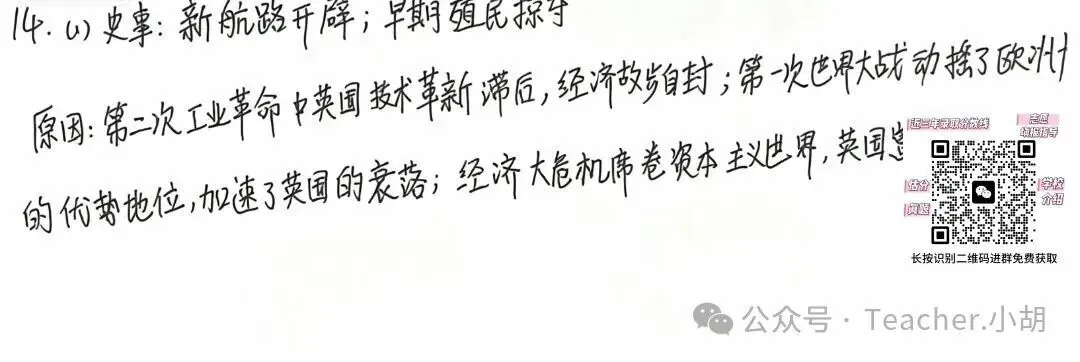 14. (1) 史事: 新航路开辟; 早期殖民掠夺
原因: 第二次工业革命中英国技术革新滞后, 经济故步自封; 第一次世界大战动摇了欧洲
的优势地位, 加速了英国的衰落; 经济大危机席卷资本主义世界, 英国
近三年录取分数线
志愿填报指导
估分
真题
学校介绍
长按识别二维码进群免费获取
公众号 · Teacher.小胡